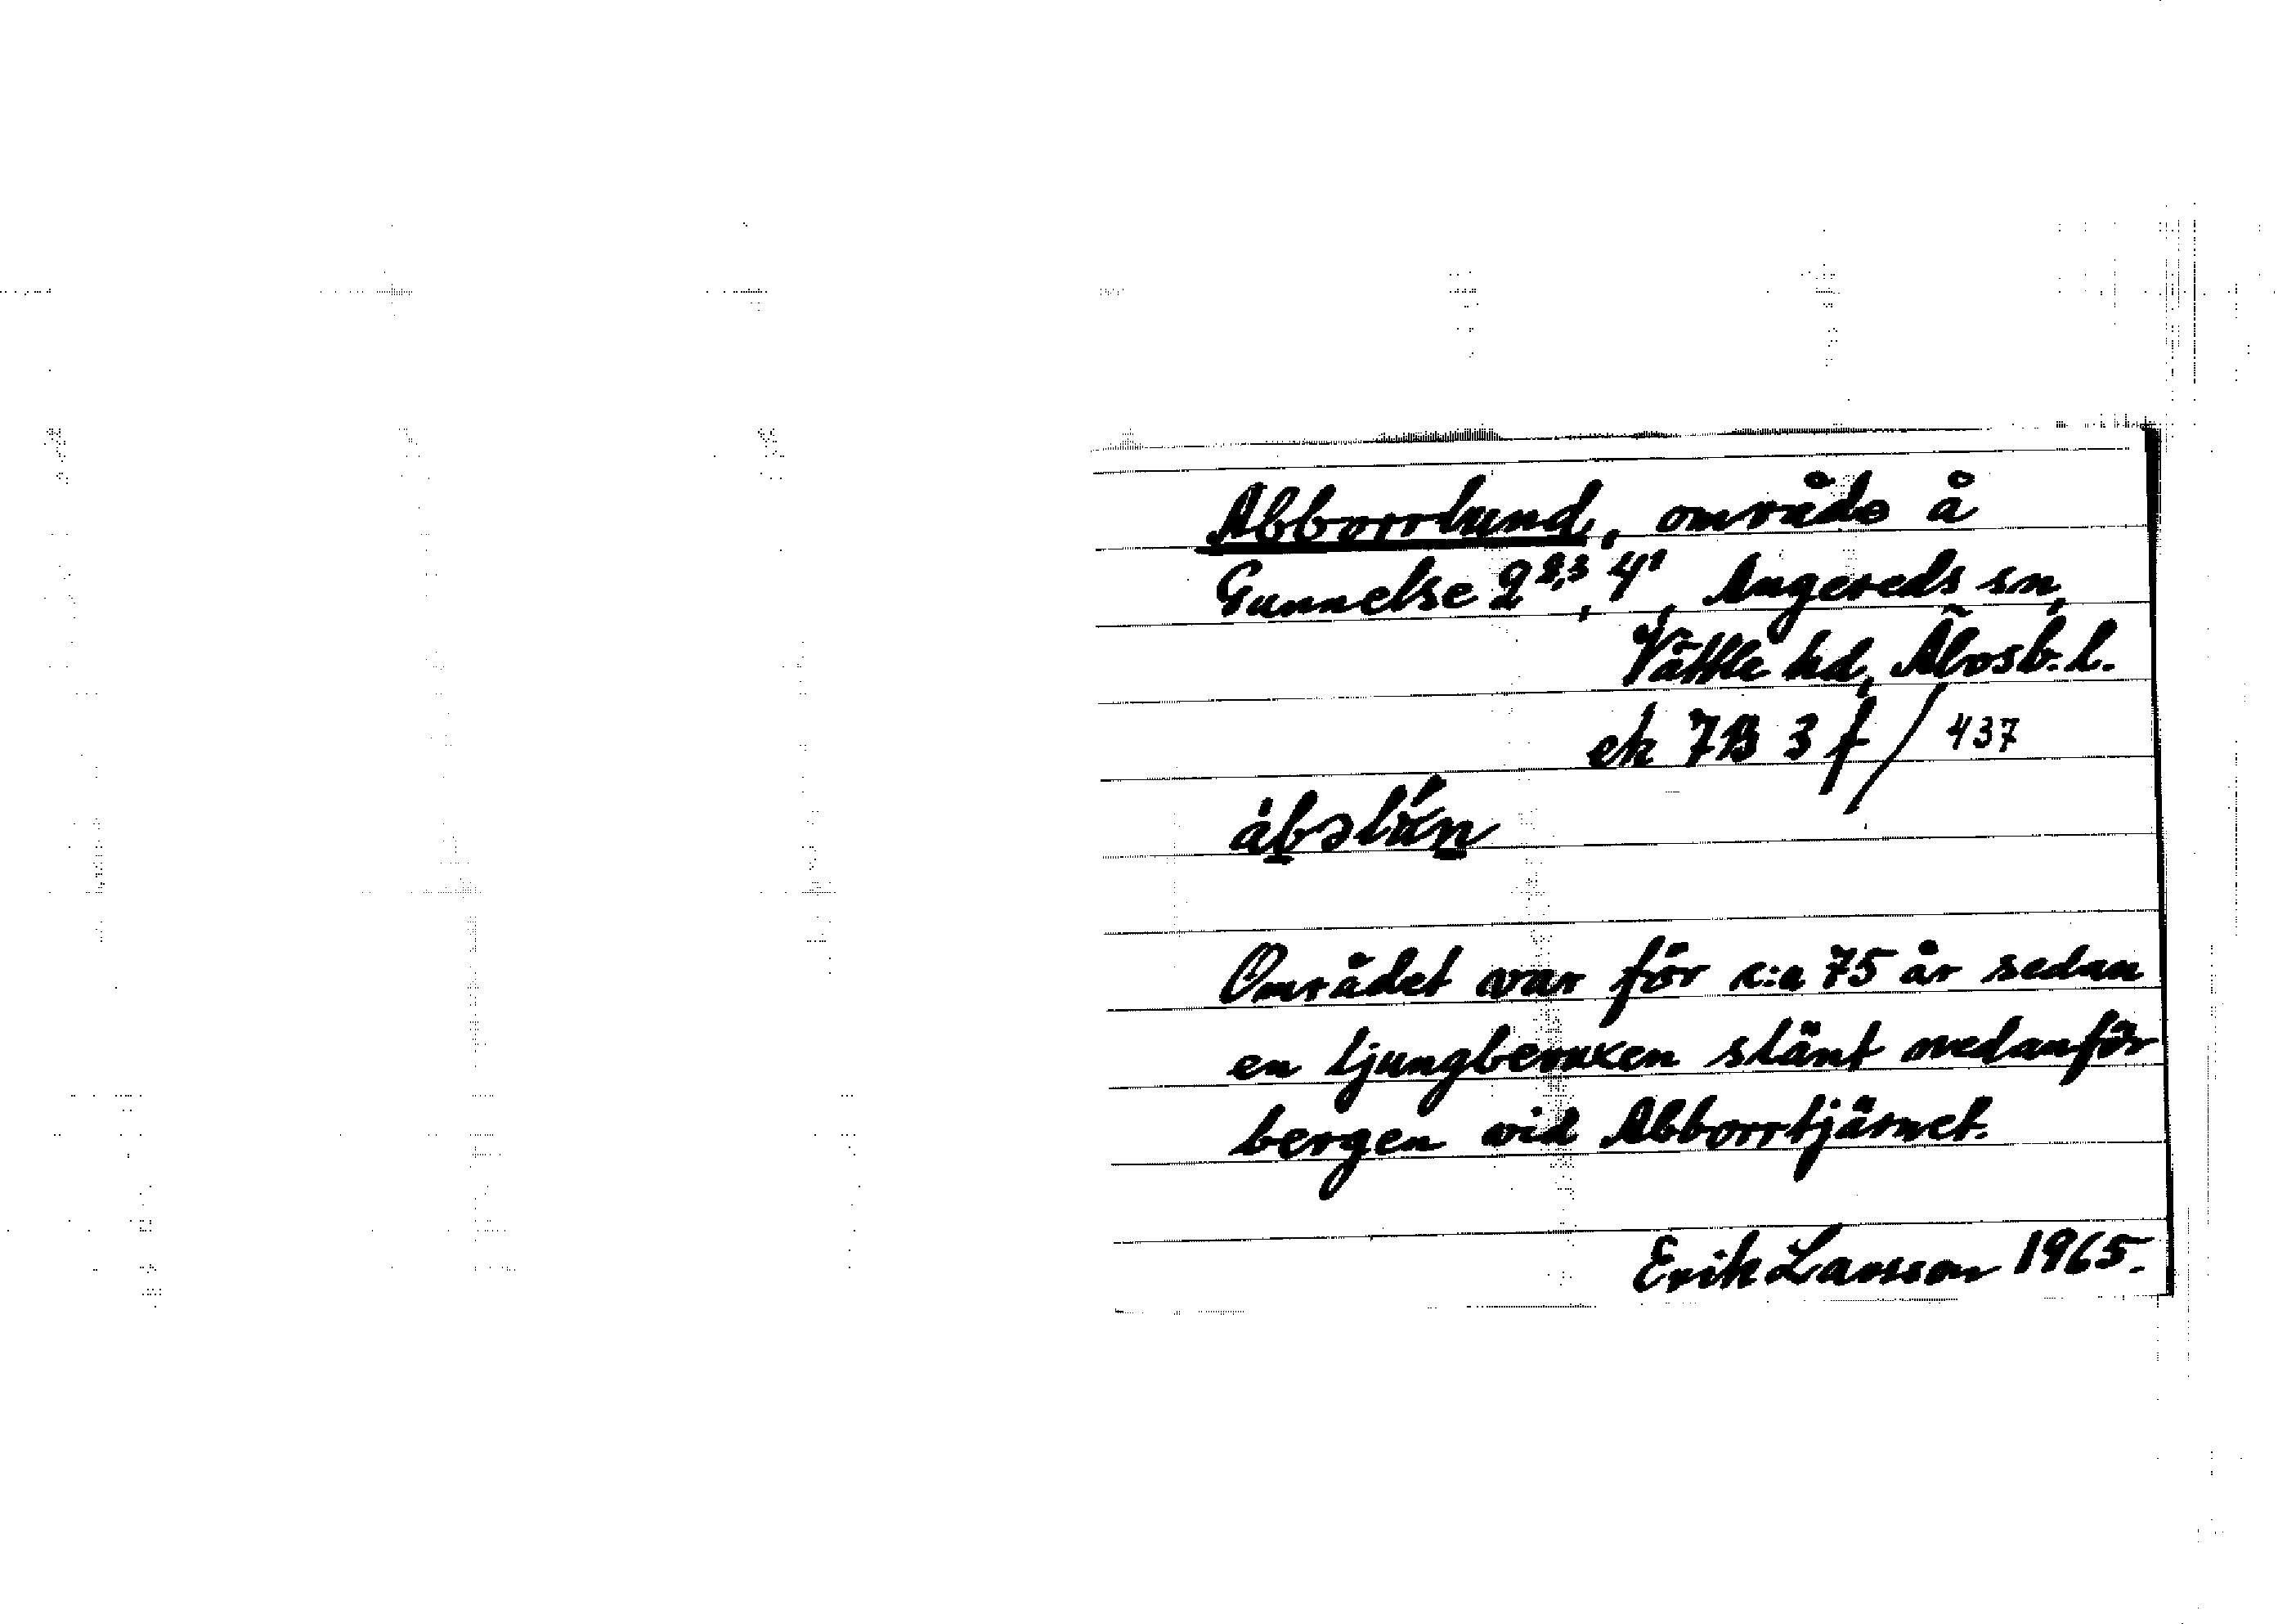 Abborrlund, område å
Gunnelse 2²,³, 4¹, Angereds sn,
Vättle hd, Älvsb. l.
ek 7B 3 f / 437
Området var för c:a 75 år sedan
en ljungbevuxen slänt nedanför
bergen vid Abborrtjärnet.
Erik Larsson 1965.